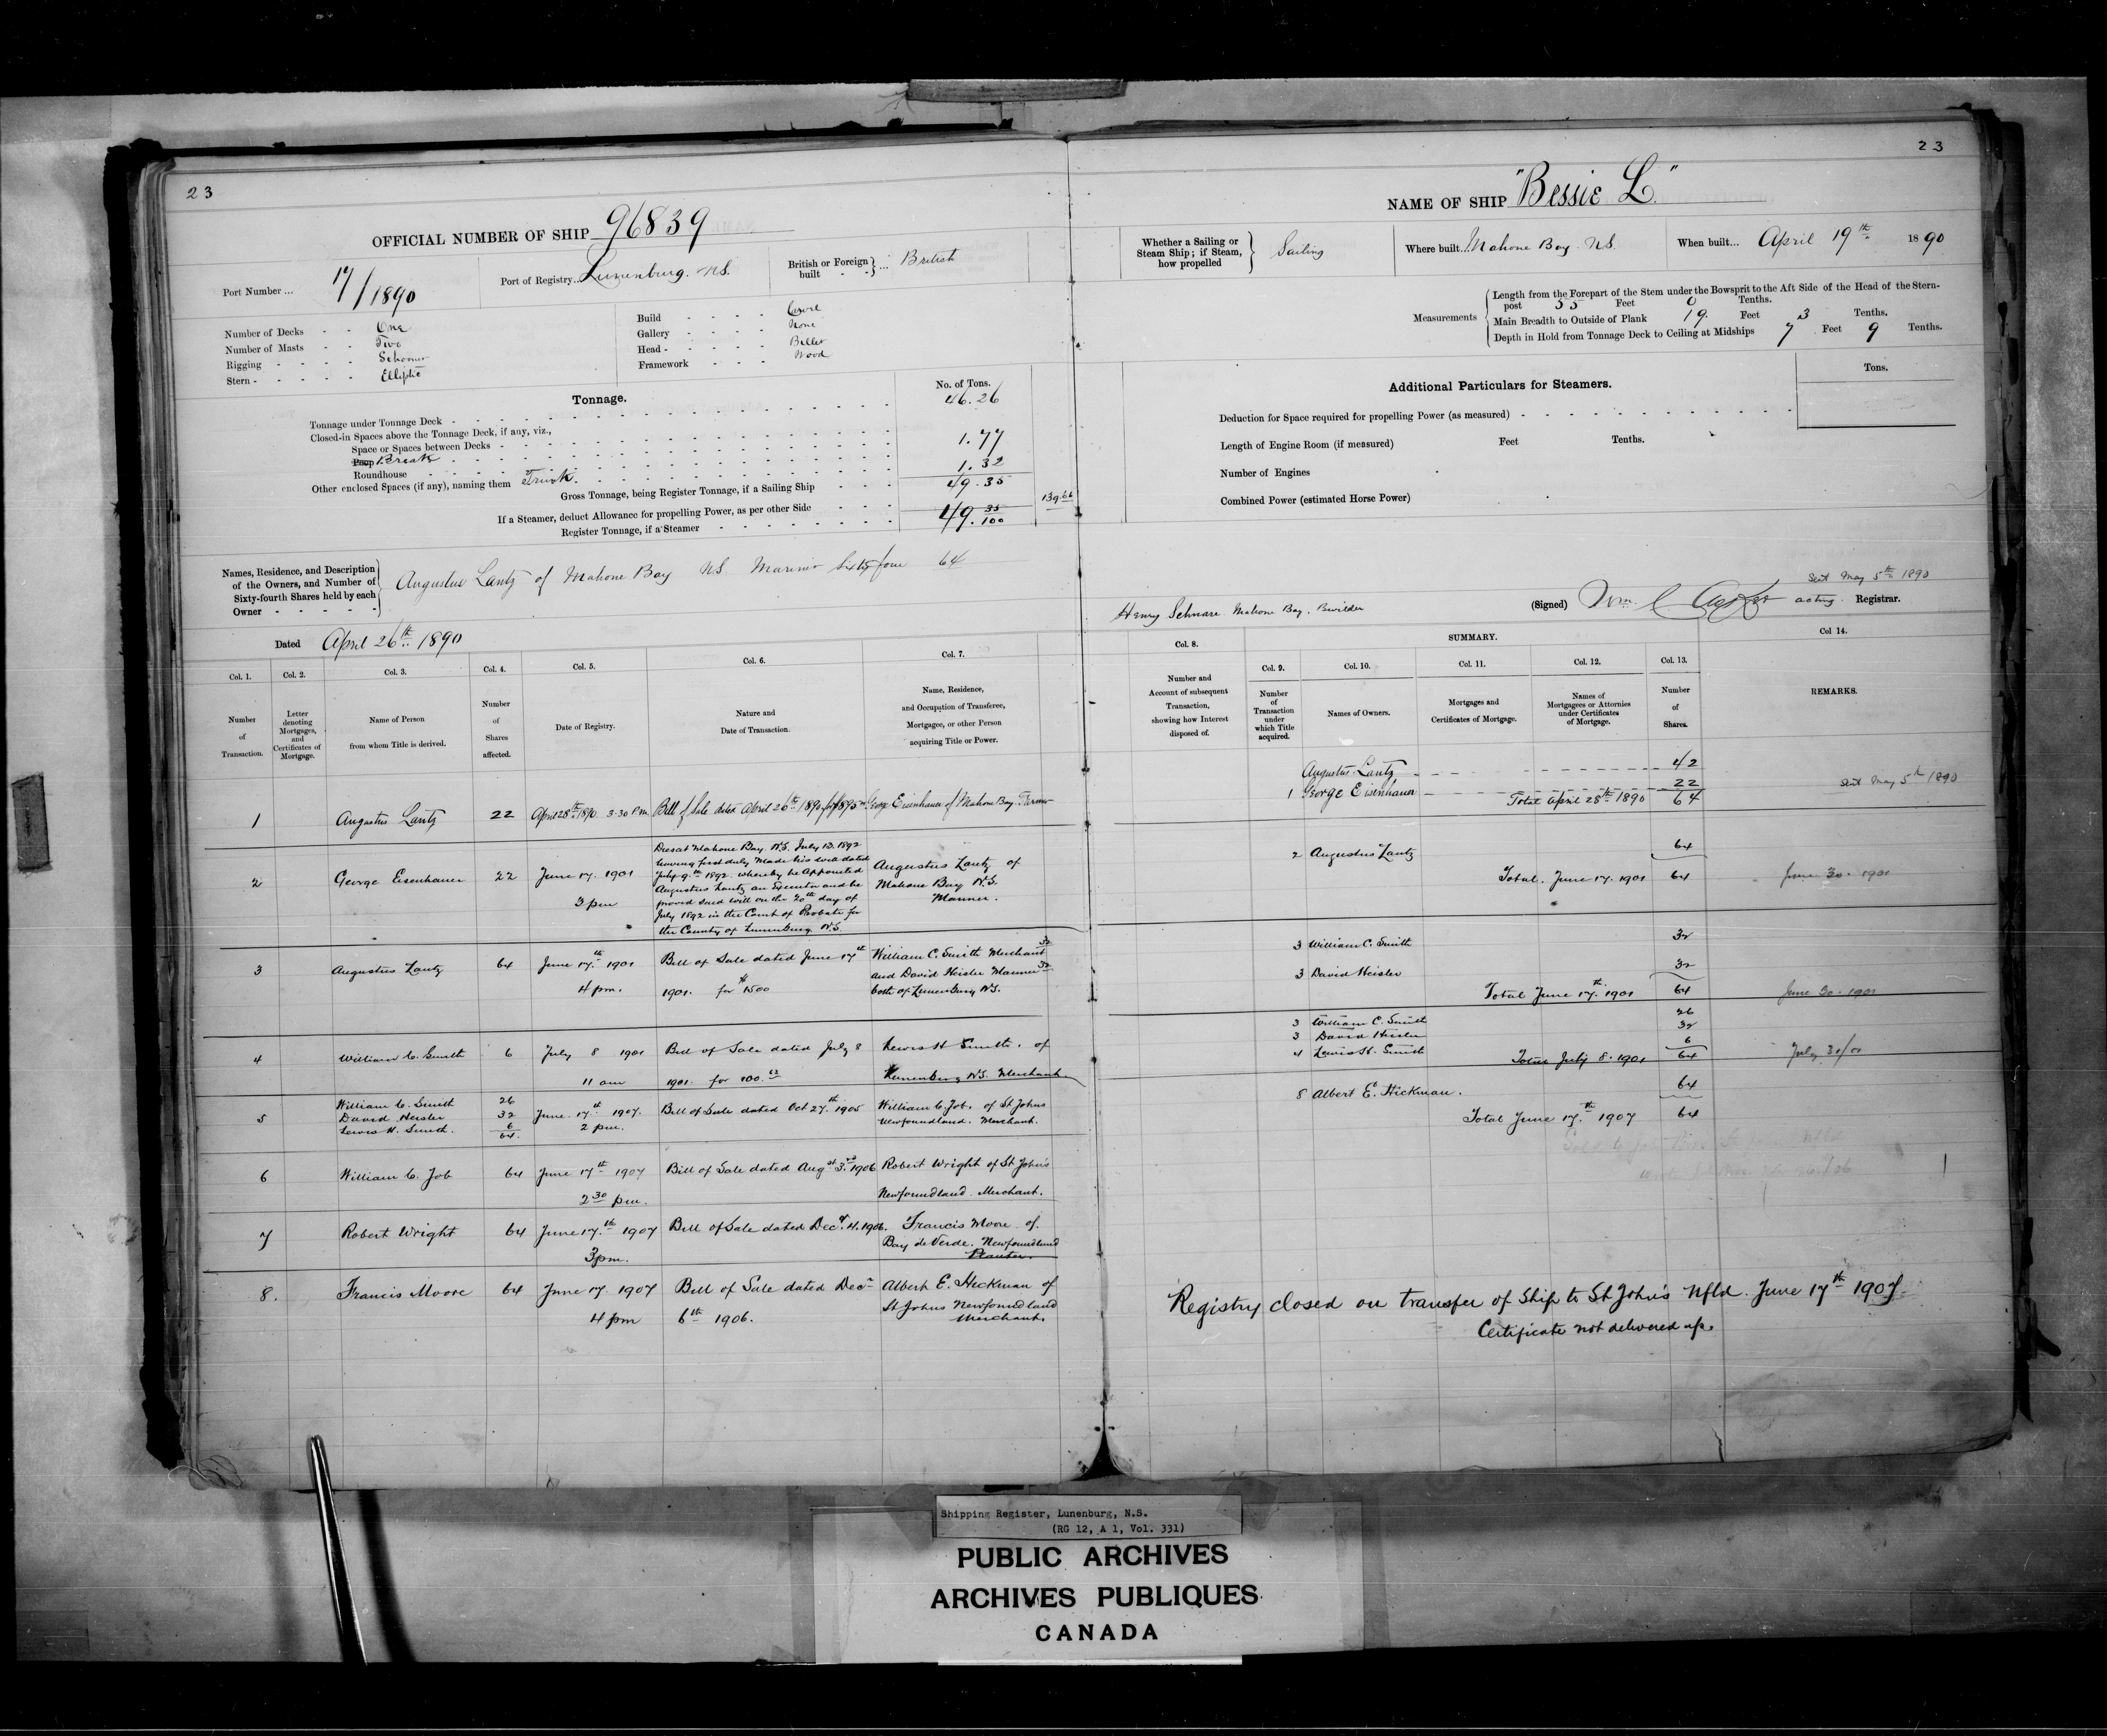 23
OFFICIAL NUMBER OF SHIP 96839
Port Number ... 17/1890
Port of Registry.. Lunenburg. N.S.
British or Foreign built - - } ... British
Number of Decks - - One
Number of Masts - - Two
Rigging - - - - Schooner
Stern - - - - - Elliptic
Build - - - - Carvel
Gallery - - - - None
Head - - - - - Billet
Framework - - - Wood
Tonnage.
No. of Tons.
Tonnage under Tonnage Deck - 46.26
Closed-in Spaces above the Tonnage Deck, if any, viz.,
Space or Spaces between Decks -
Poop Break 1.77
Roundhouse
Other enclosed Spaces (if any), naming them Trunk. 1.32
Gross Tonnage, being Register Tonnage, if a Sailing Ship 49.35
139.66
If a Steamer, deduct Allowance for propelling Power, as per other Side
Register Tonnage, if a Steamer 49. 35/100
Names, Residence, and Description of the Owners, and Number of Sixty-fourth Shares held by each Owner - - - - -
Augustus Lantz of Mahone Bay N.S. Mariner Sixty four 64
Dated April 26th 1890
Col. 1. Col. 2. Col. 3. Col. 4. Col. 5. Col. 6. Col. 7.
Number of Transaction.
Letter denoting Mortgages, and Certificates of Mortgage.
Name of Person from whom Title is derived.
Number of Shares affected.
Date of Registry.
Nature and Date of Transaction.
Name, Residence, and Occupation of Transferee, Mortgagee, or other Person acquiring Title or Power.
1 Augustus Lantz 22 April 28th 1890 3.30 P.m. Bill of Sale dated April 26th 1890 George Eisenhauer of Mahone Bay. Farmer
2 George Eisenhauer 22 June 17. 1901
3 pm
Dies at Mahone Bay. N.S. July 13. 1892
having first duly made his will dated
July 9th 1892. whereby he appointed
Augustus Lantz an Executor and he
proved said will on the 20th day of
July 1892 in the Court of Probate for
the County of Lunenburg N.S.
Augustus Lantz of
Mahone Bay N.S.
Mariner.
3 Augustus Lantz 64 June 17th 1901
4 pm.
Bill of Sale dated June 17th
1901. for $1500
William C. Smith Merchant 32
and David Heisler Mariner 32
both of Lunenburg N.S.
4 William C. Smith 6 July 8 1901
11 am
Bill of Sale dated July 8
1901. for 100.
Lewis H Smith. of
Lunenburg N.S. Merchant
5 William C. Smith 26
David Heisler 32
Lewis H. Smith. 6
64.
June 17th 1907.
2 pm.
Bill of Sale dated Oct 27th 1905
William C Job. of St Johns
Newfoundland. Merchant.
6 William C. Job 64 June 17th 1907
2 30 pm.
Bill of Sale dated Augst 3rd 1906
Robert Wright of St John's
Newfoundland. Merchant.
7 Robert Wright 64 June 17th 1907
3 pm.
Bill of Sale dated Decr 4. 1906.
Francis Moore of.
Bay de Verde. Newfoundland
Planter.
8. Francis Moore 64 June 17. 1907
4 pm
Bill of Sale dated Decr
6th 1906.
Albert E. Hickman of
St Johns Newfoundland
Merchant.
23
NAME OF SHIP "Bessie L."
Whether a Sailing or Steam Ship; if Steam, how propelled } Sailing
Where built.. Mahone Bay N.S.
When built... April 19th 1890
Measurements
Length from the Forepart of the Stem under the Bowsprit to the Aft Side of the Head of the Stern-
post 55 Feet 0 Tenths.
Main Breadth to Outside of Plank 19. Feet 3 Tenths.
Depth in Hold from Tonnage Deck to Ceiling at Midships 7 Feet 9 Tenths.
Additional Particulars for Steamers.
Tons.
Deduction for Space required for propelling Power (as measured)
Length of Engine Room (if measured) Feet Tenths.
Number of Engines
Combined Power (estimated Horse Power)
Sent May 5th 1890
Henry Schnare Mahone Bay, Builder
(Signed) Wm. C. acting Registrar.
SUMMARY.
Col. 8. Col. 9. Col. 10. Col. 11. Col. 12. Col. 13. Col 14.
Number and Account of subsequent Transaction, showing how Interest disposed of.
Number of Transaction under which Title acquired.
Names of Owners.
Mortgages and Certificates of Mortgage.
Names of Mortgagees or Attornies under Certificates of Mortgage.
Number of Shares.
REMARKS.
Augustus Lantz 42
1 George Eisenhauer 22
Total April 28th 1890 64
Sent May 5th 1890
2 Augustus Lantz 64
Total. June 17. 1901 64
June 30. 1901
3 William C. Smith 32
3 David Heisler 32
Total June 17th 1901 64
June 30. 1901
3 William C. Smith 26
3 David Heisler 32
4 Lewis H. Smith 6
Total July 8. 1901 64
July 31/01
8 Albert E. Hickman. 64
Total June 17th 1907 64
Registry closed on transfer of Ship to St John's Nfld. June 17th 1907.
Certificate not delivered up.
Shipping Register, Lunenburg, N.S.
(RG 12, A 1, Vol. 331)
PUBLIC ARCHIVES
ARCHIVES PUBLIQUES
CANADA